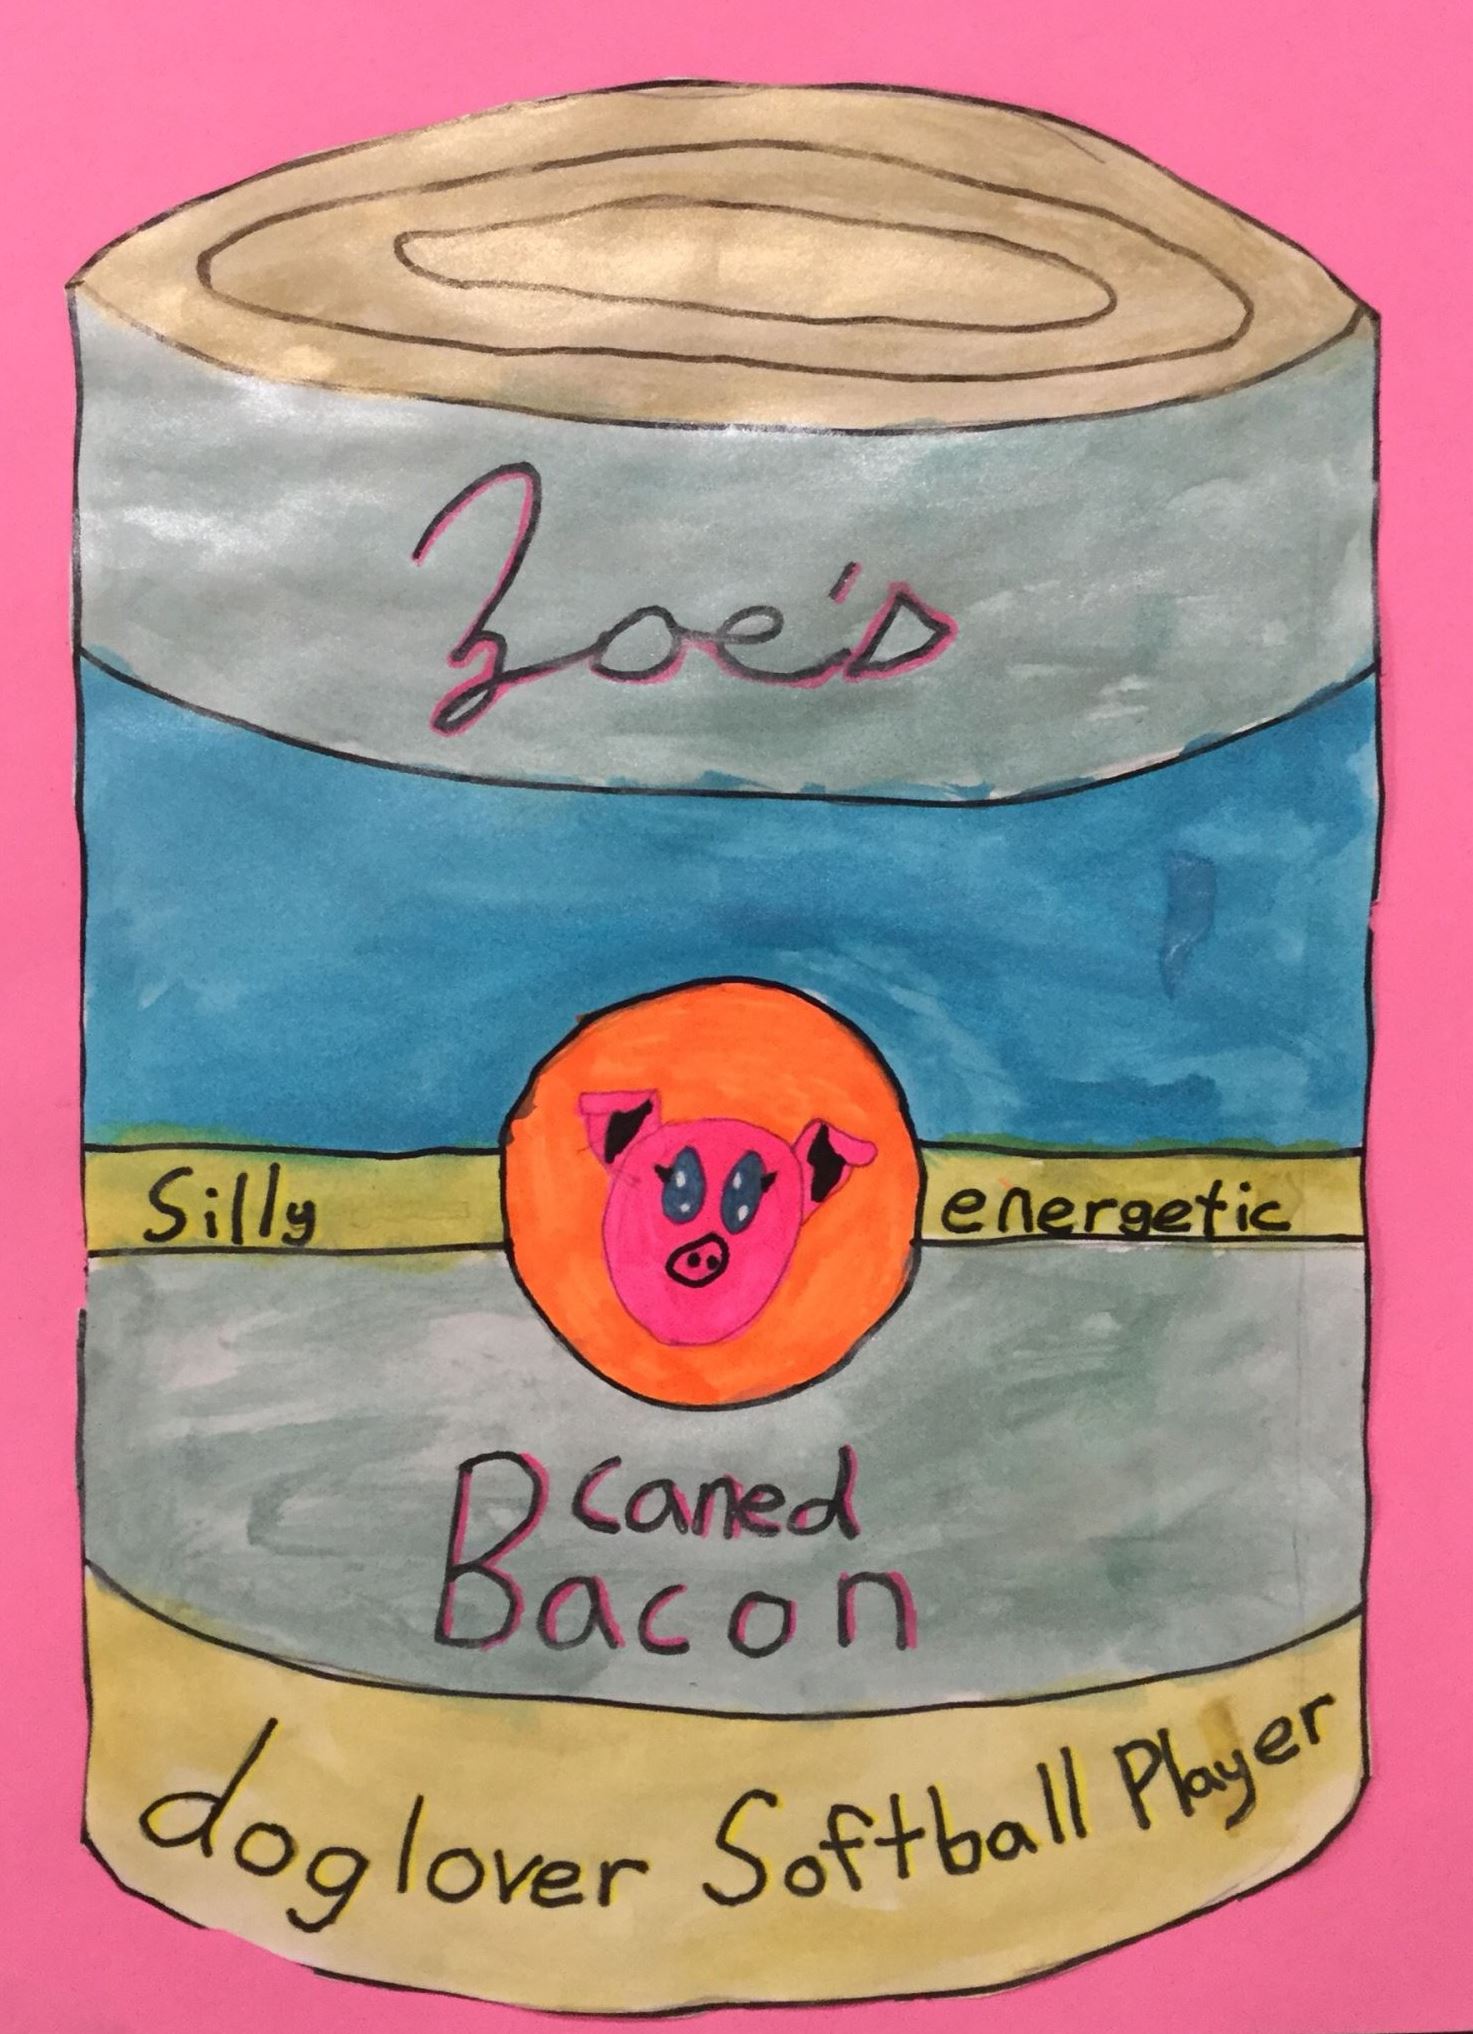 Zoe's
Silly energetic
caned
Bacon
dog lover Softball Player